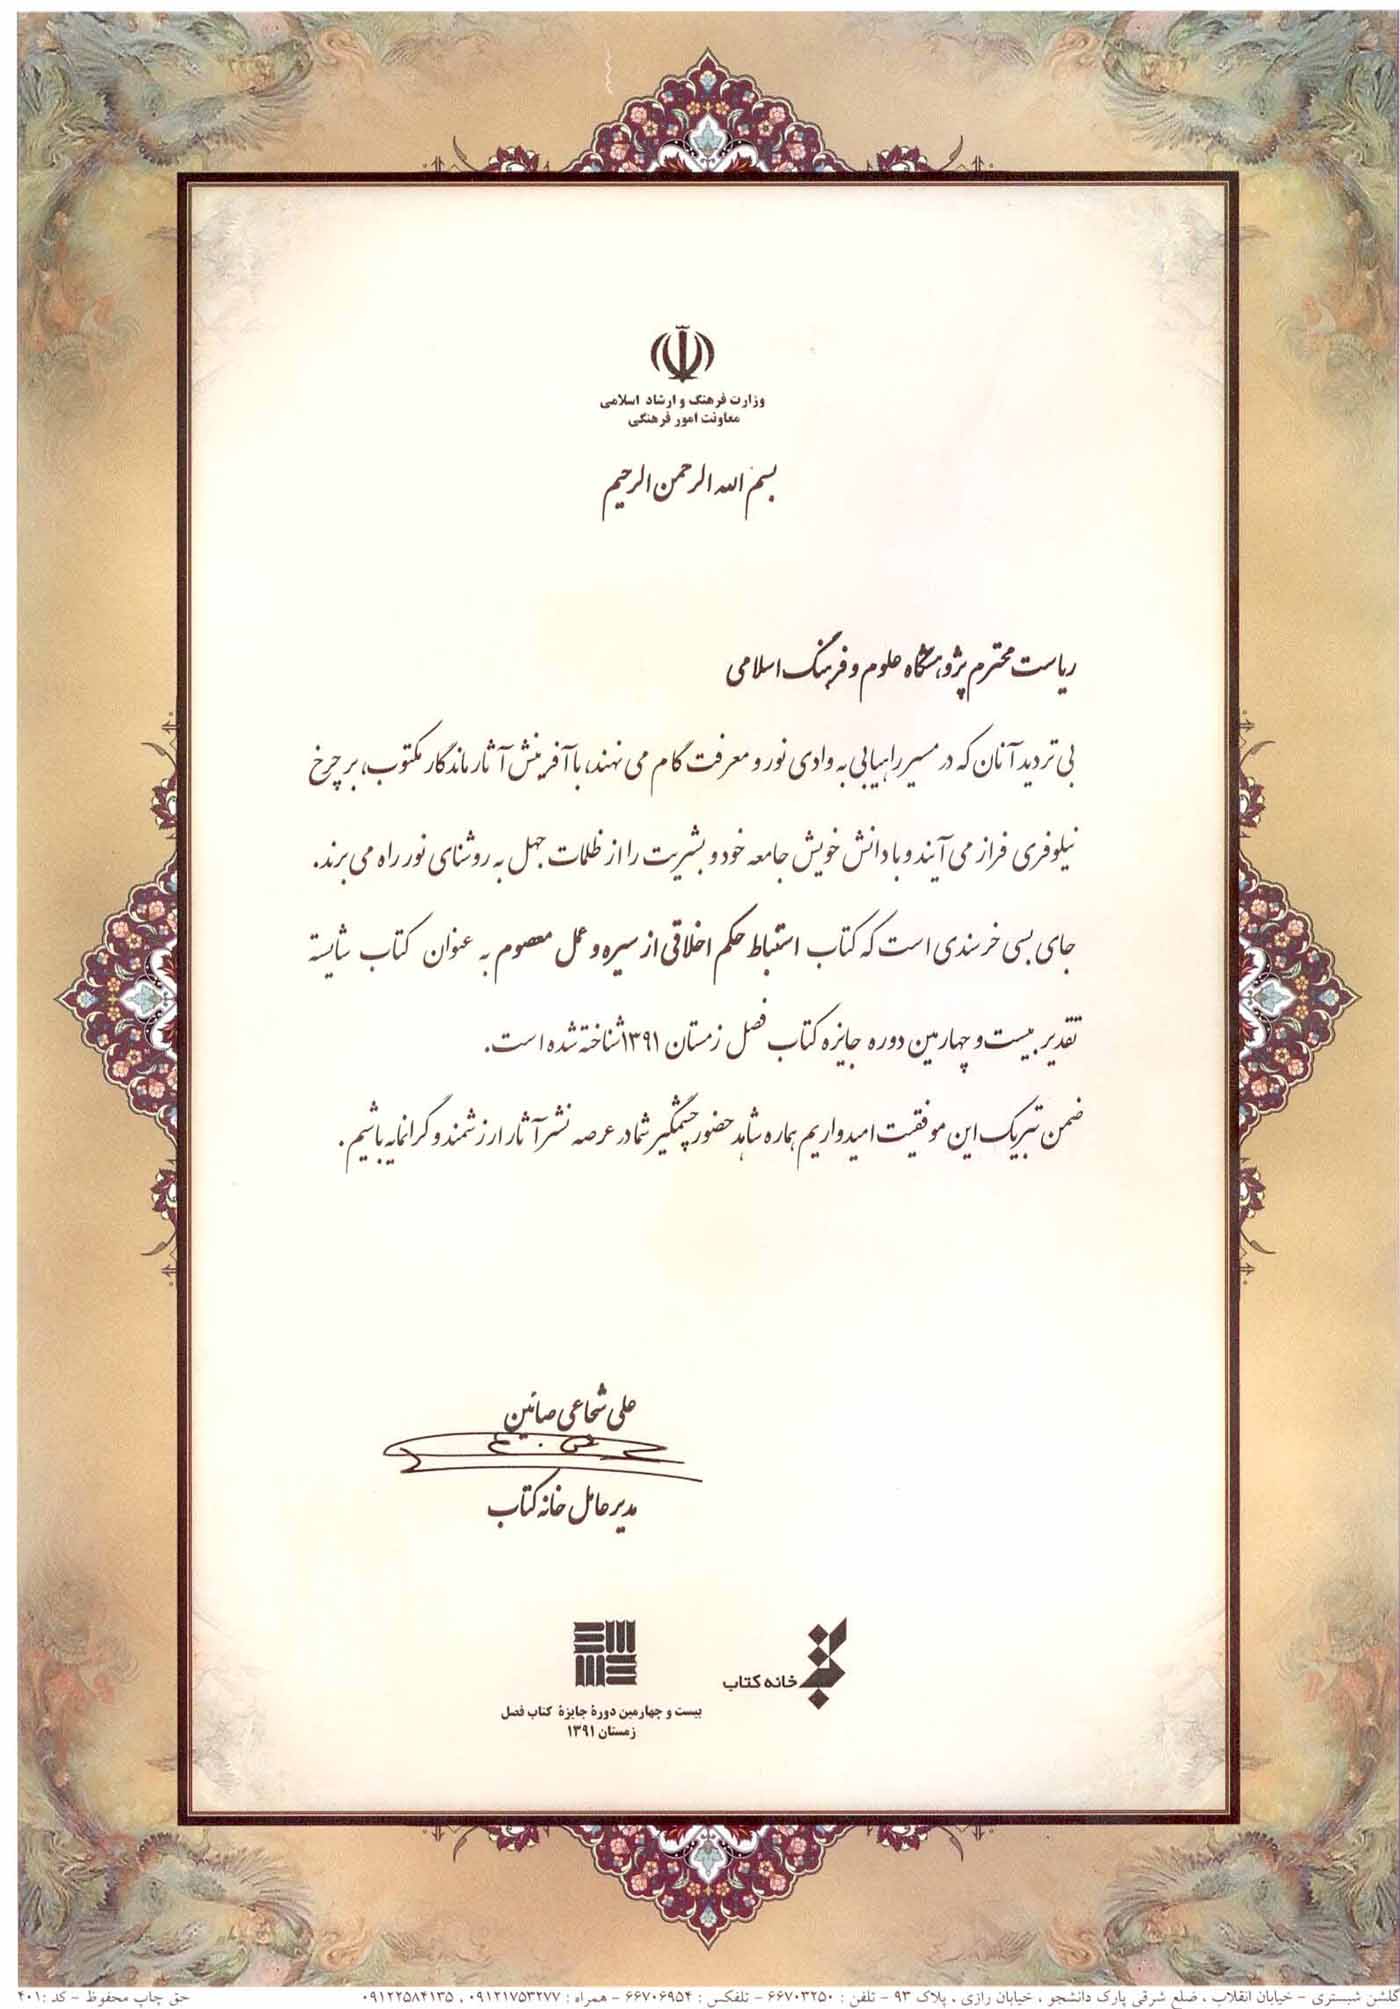 وزارت فرهنگ و ارشاد اسلامی
معاونت امور فرهنگی
بسم الله الرحمن الرحیم
ریاست محترم پژوهشگاه علوم و فرهنگ اسلامی
بی تردید آنان که در مسیر راهیابی به وادی نور و معرفت گام می نهند، با آفرینش آثار ماندگار مکتوب، بر چرخ
نیلوفری فراز می آیند و با دانش خویش جامعه خود و بشریت را از ظلمات جهل به روشنای نور راه می برند.
جای بسی خرسندی است که کتاب استنباط حکم اخلاقی از سیره و عمل معصوم به عنوان کتاب شایسته
تقدیر بیست و چهارمین دوره جایزه کتاب فصل زمستان ۱۳۹۱ شناخته شده است.
ضمن تبریک این موفقیت امیدواریم هماره شاهد حضور چشمگیر شما در عرصه نشر آثار ارزشمند و گرانمایه باشیم.
علی شجاعی صائین
مدیر عامل خانه کتاب
خانه کتاب
بیست و چهارمین دورهٔ جایزهٔ کتاب فصل
زمستان ۱۳۹۱
لشن شبستری - خیابان انقلاب ، ضلع شرقی پارک دانشجو ، خیابان رازی ، پلاک ۹۳ - تلفن : ۶۶۷۰۳۲۵۰ - تلفکس : ۶۶۷۰۶۹۵۴ - همراه : ۰۹۱۲۱۷۵۳۲۷۷ ، ۰۹۱۲۲۵۸۴۱۳۵ حق چاپ محفوظ - کد : ۴۰۱